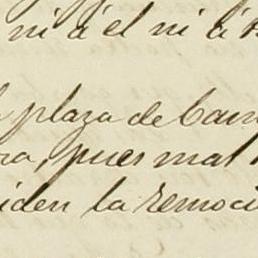 ni á él ni á
plaza de Cam
ra, pues mal
iden la remoci